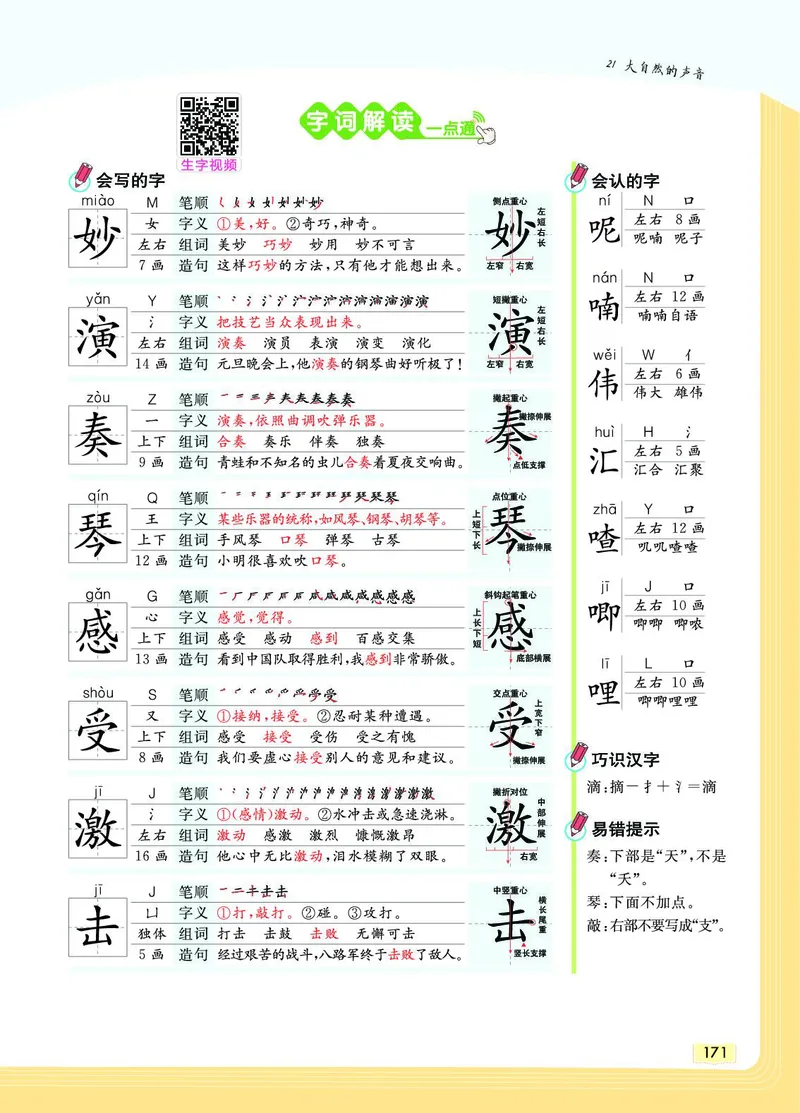 21 大自然的声音
字词解读一点通
生字视频
会写的字
miào M 笔顺
妙 女 字义 ①美,好。②奇巧,神奇。
左右 组词 美妙 巧妙 妙用 妙不可言
7画 造句 这样巧妙的方法,只有他才能想出来。
侧点重心
左短右长
妙
左窄 右宽
yǎn Y 笔顺
演 氵 字义 把技艺当众表现出来。
左右 组词 演奏 演员 表演 演变 演化
14画 造句 元旦晚会上,他演奏的钢琴曲好听极了!
短撇重心
左短右长
演
左窄 右宽
zòu Z 笔顺
奏 一 字义 演奏,依照曲调吹弹乐器。
上下 组词 合奏 奏乐 伴奏 独奏
9画 造句 青蛙和不知名的虫儿合奏着夏夜交响曲。
撇起重心
撇捺伸展
奏
点低支撑
qín Q 笔顺
琴 王 字义 某些乐器的统称,如风琴、钢琴、胡琴等。
上下 组词 手风琴 口琴 弹琴 古琴
12画 造句 小明很喜欢吹口琴。
点位重心
上短下长
琴
撇捺伸展
gǎn G 笔顺
感 心 字义 感觉,觉得。
上下 组词 感受 感动 感到 百感交集
13画 造句 看到中国队取得胜利,我感到非常骄傲。
斜钩起笔重心
上长下短
感
底部横展
shòu S 笔顺
受 又 字义 ①接纳,接受。②忍耐某种遭遇。
上下 组词 感受 接受 受伤 受之有愧
8画 造句 我们要虚心接受别人的意见和建议。
交点重心
上宽下窄
受
撇捺伸展
jī J 笔顺
激 氵 字义 ①(感情)激动。②水冲击或急速浇淋。
左右 组词 激动 感激 激烈 慷慨激昂
16画 造句 他心中无比激动,泪水模糊了双眼。
撇折对位
中部伸展
激
右宽
jī J 笔顺
击 凵 字义 ①打,敲打。②碰。③攻打。
独体 组词 打击 击鼓 击败 无懈可击
5画 造句 经过艰苦的战斗,八路军终于击败了敌人。
中竖重心
横长尾重
击
竖长支撑
会认的字
ní N 口
呢 左右 8画
呢喃 呢子
nán N 口
喃 左右 12画
喃喃自语
wěi W 亻
伟 左右 6画
伟大 雄伟
huì H 氵
汇 左右 5画
汇合 汇聚
zhā Y 口
喳 左右 12画
叽叽喳喳
jī J 口
唧 左右 10画
唧唧 唧哝
lī L 口
哩 左右 10画
唧唧哩哩
巧识汉字
滴:摘-扌+氵=滴
易错提示
奏:下部是“天”,不是
“夭”。
琴:下面不加点。
敲:右部不要写成“支”。
171